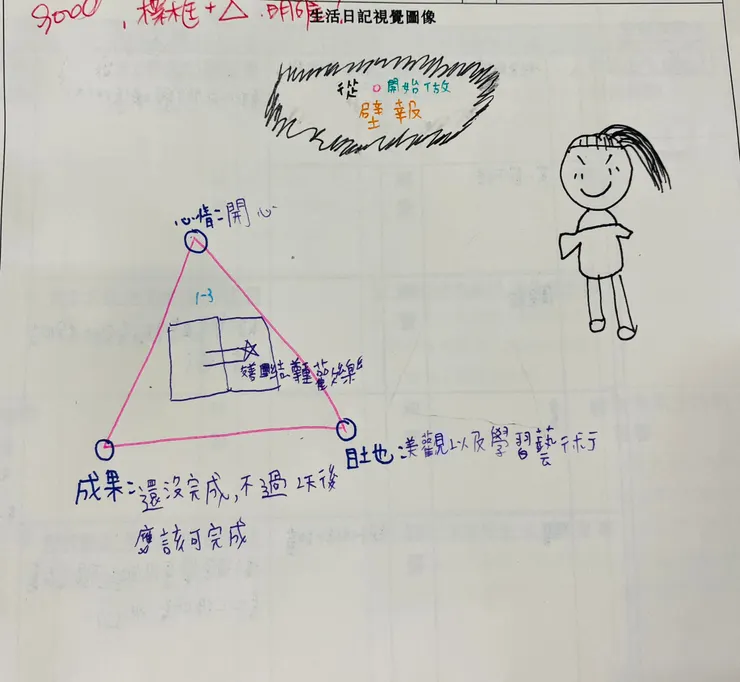 Good, 標框+△.明確!
生活日記視覺圖像
從0開始做
壁報
心情:開心
1-3
結
成果:還沒完成,不過2天後
應該可完成
美觀以及學習藝術